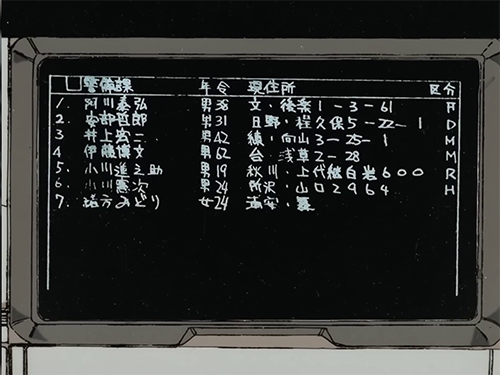 警備課 年令 現住所 区分
1. 阿川泰弘 男38 文・後楽1-3-61 F
2. 安部哲郎 男31 日野・程久保5-22-1 D
3. 井上宏二 男42 練・向山3-25-1 M
4. 伊藤博文 男62 台 浅草2-28 M
5. 小川進之助 男19 秋川・上代継白岩600 R
6. 小川憲次 男24 所沢・山口2964 H
7. 緒方みどり 女24 浦安・